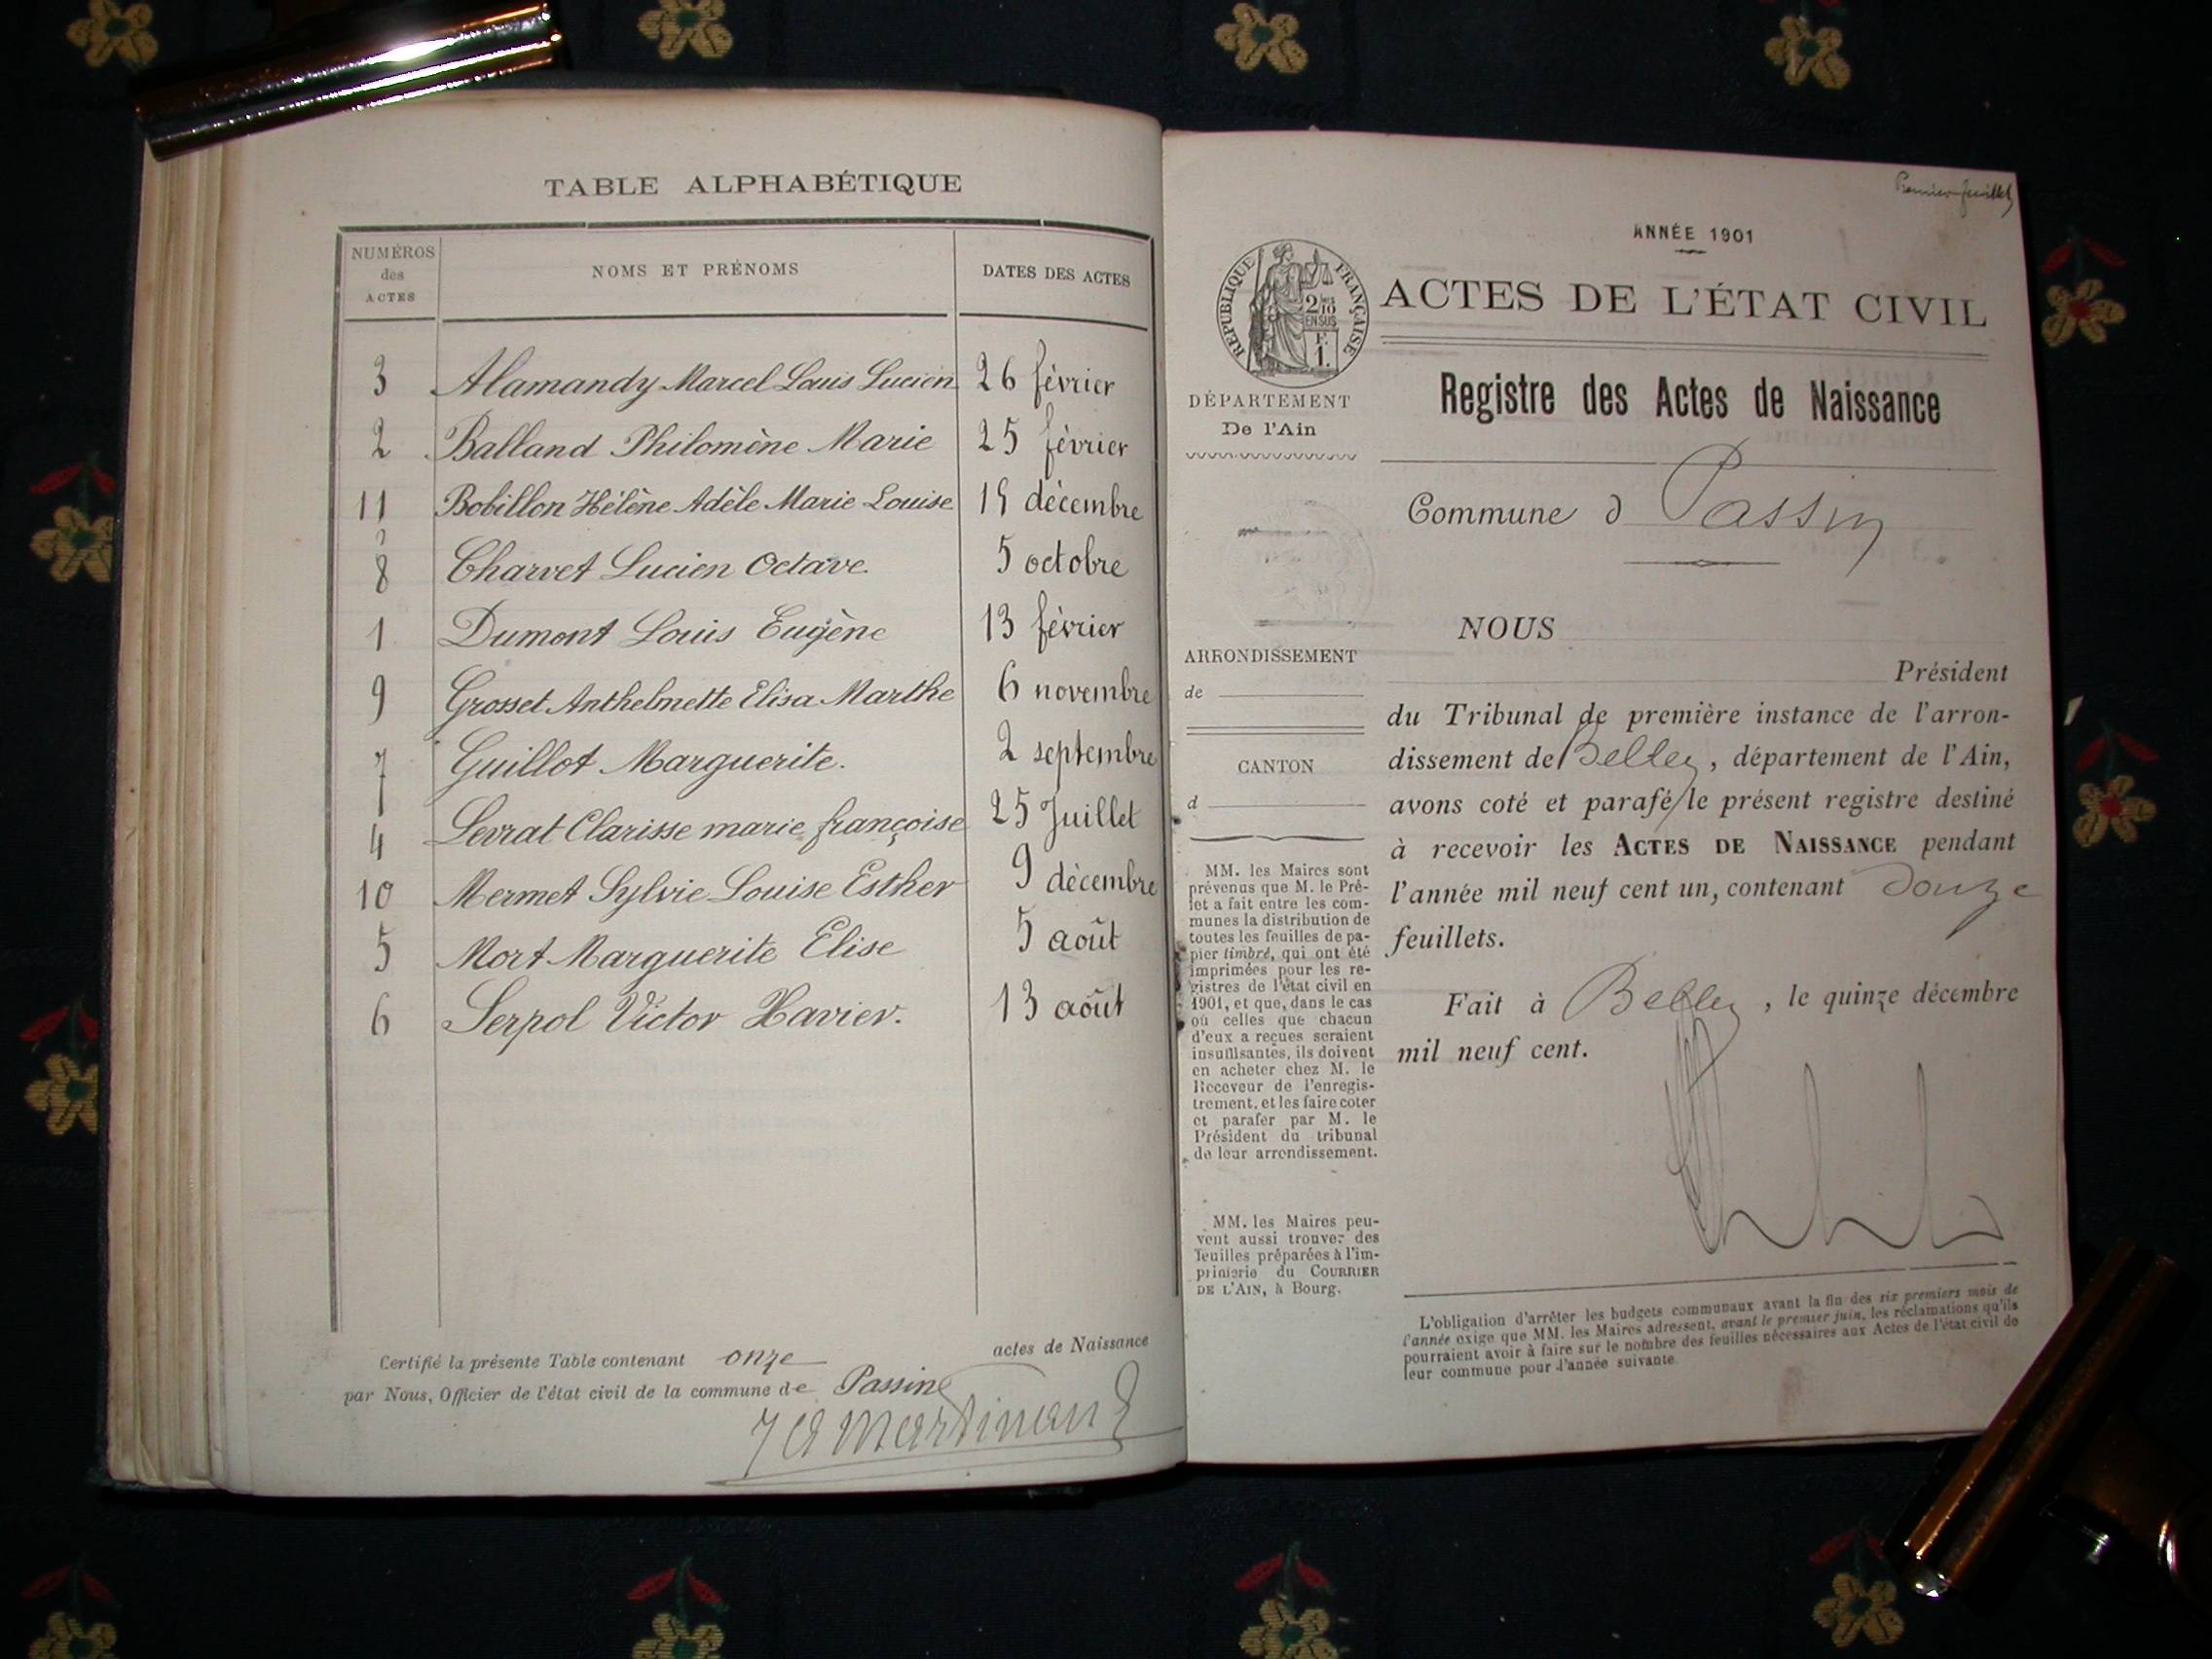 TABLE ALPHABÉTIQUE
NUMÉROS des ACTES
NOMS ET PRÉNOMS
DATES DES ACTES
3 Alamandy Marcel Louis Lucien 26 février
2 Balland Philomène Marie 25 février
11 Bobillon Hélène Adèle Marie Louise 19 décembre
8 Charvet Lucien Octave 5 octobre
1 Dumont Louis Eugène 13 février
9 Grosset Anthelmette Elisa Marthe 6 novembre
7 Guillot Marguerite. 2 septembre
4 Levrat Clarisse marie françoise 25 Juillet
10 Mermet Sylvie Louise Esther 9 décembre
5 Mort Marguerite Elise 5 août
6 Serpol Victor Xavier. 13 août
Certifié la présente Table contenant onze actes de Naissance
par Nous, Officier de l'état civil de la commune de Passin
Martinand
Premier feuillet
ANNÉE 1901
RÉPUBLIQUE FRANÇAISE
2/10
EN SUS
F.
1.
ACTES DE L'ÉTAT CIVIL
DÉPARTEMENT
De l'Ain
Registre des Actes de Naissance
Commune d Passin
NOUS
ARRONDISSEMENT
de
CANTON
d
Président
du Tribunal de première instance de l'arron-
dissement de Belley, département de l'Ain,
avons coté et parafé le présent registre destiné
à recevoir les ACTES DE NAISSANCE pendant
l'année mil neuf cent un, contenant douze
feuillets.
Fait à Belley, le quinze décembre
mil neuf cent.
MM. les Maires sont
prévenus que M. le Pré-
fet a fait entre les com-
munes la distribution de
toutes les feuilles de pa-
pier timbré, qui ont été
imprimées pour les re-
gistres de l'état civil en
1901, et que, dans le cas
où celles que chacun
d'eux a reçues seraient
insuffisantes, ils doivent
en acheter chez M. le
Receveur de l'enregis-
trement, et les faire coter
et parafer par M. le
Président du tribunal
de leur arrondissement.
MM. les Maires peu-
vent aussi trouver des
feuilles préparées à l'im-
primerie du COURRIER
DE L'AIN, à Bourg.
L'obligation d'arrêter les budgets communaux avant la fin des six premiers mois de
l'année exige que MM. les Maires adressent, avant le premier juin, les réclamations qu'ils
pourraient avoir à faire sur le nombre des feuilles nécessaires aux Actes de l'état civil de
leur commune pour l'année suivante.